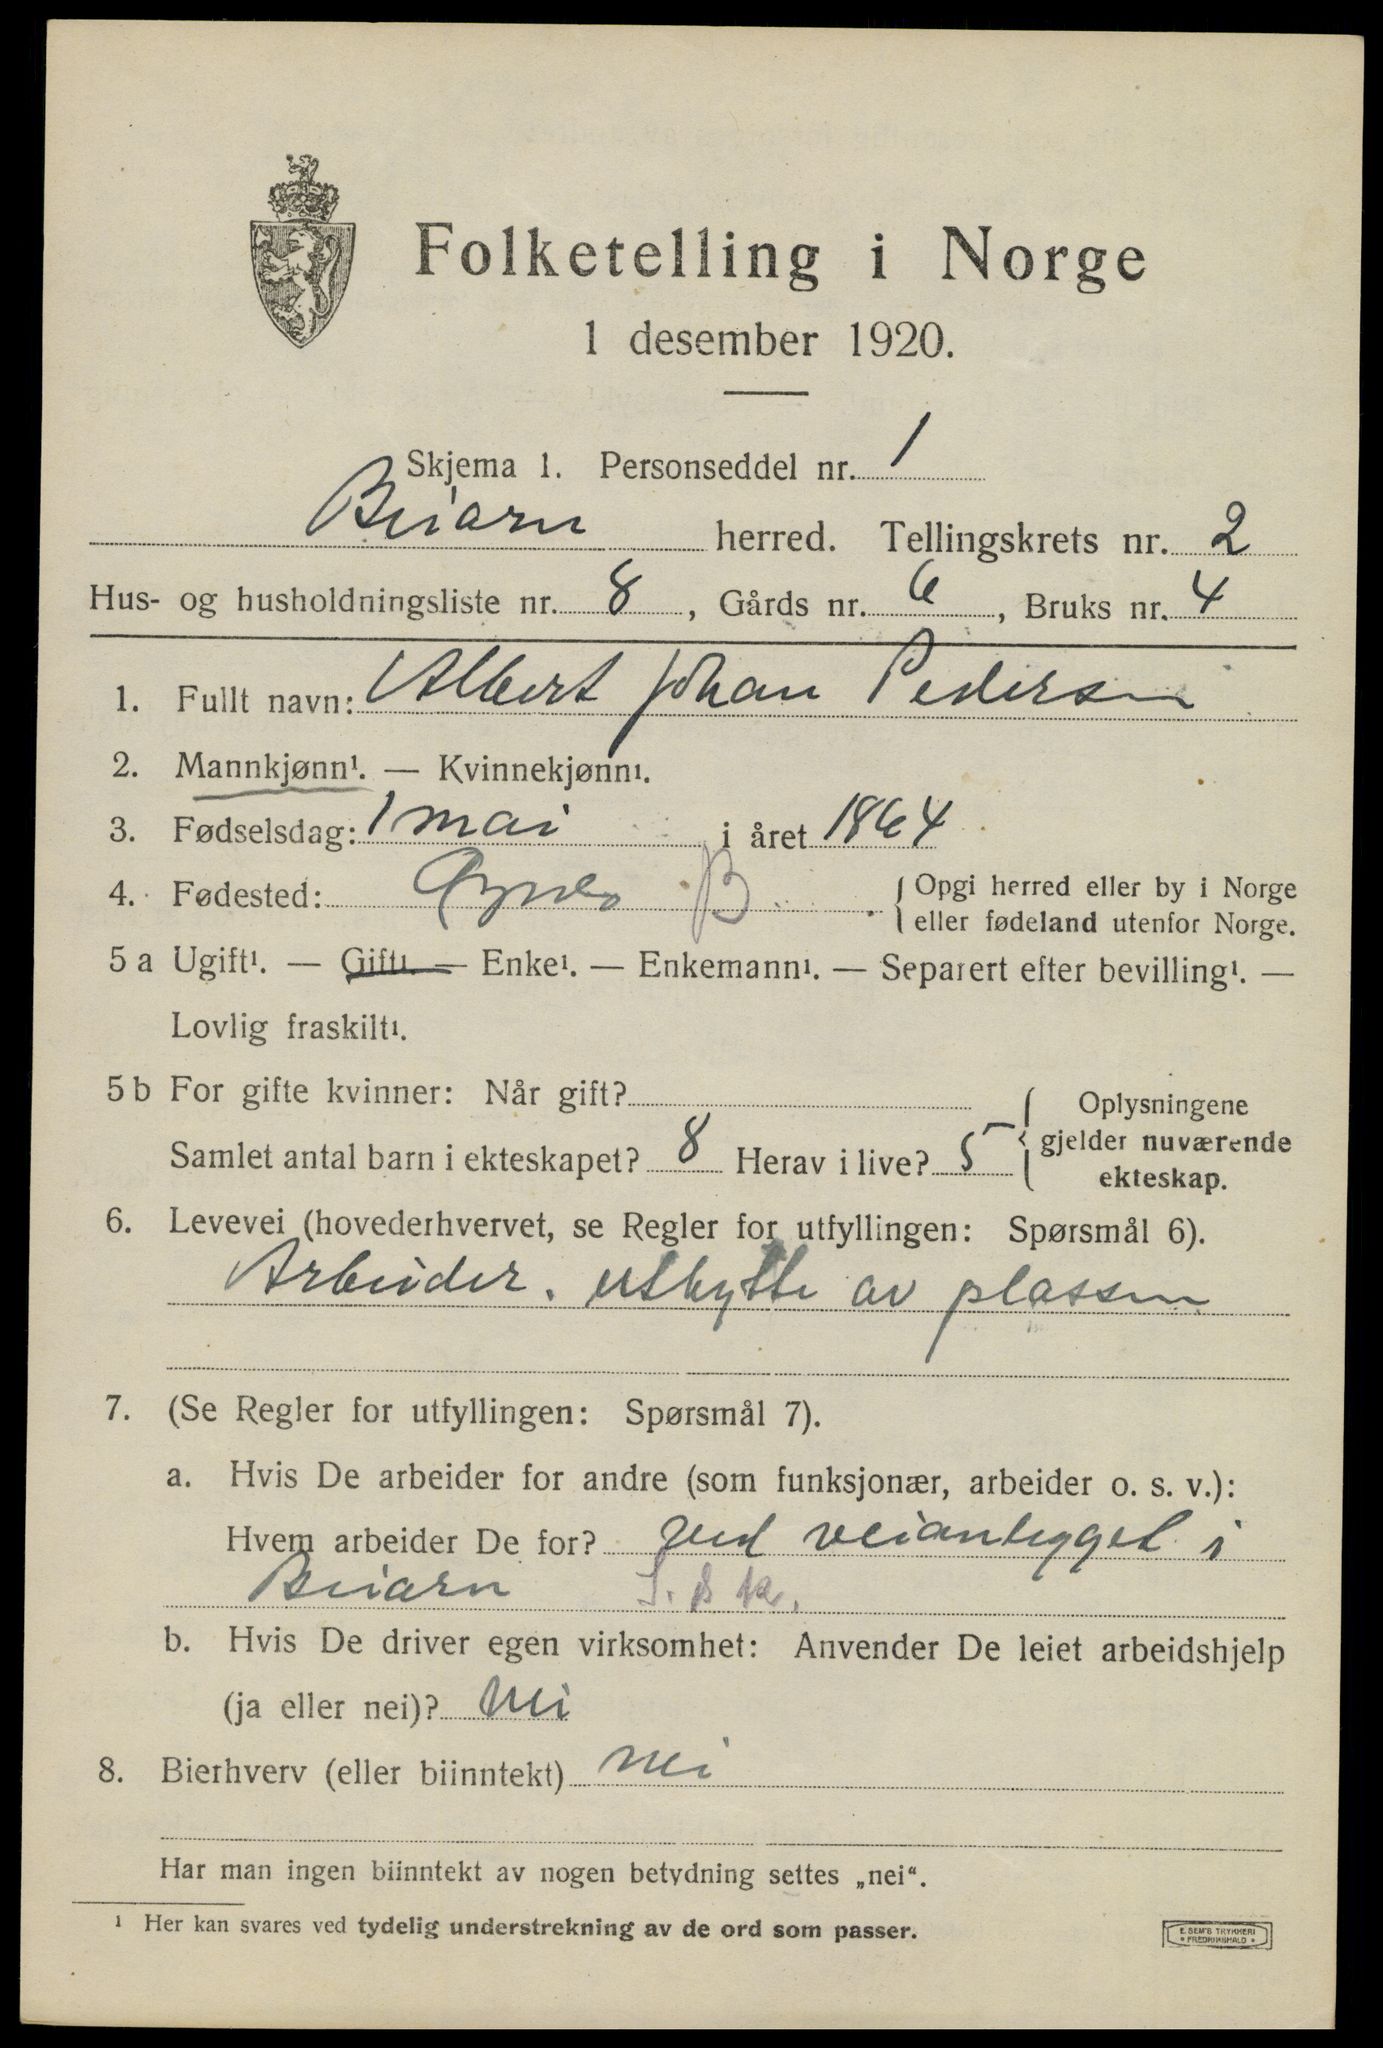 Folketelling i Norge
1 desember 1920.
Skjema 1. Personseddel nr. 1
Beiarn herred. Tellingskrets nr. 2
Hus- og husholdningsliste nr. 8, Gårds nr. 6, Bruks nr. 4
1. Fullt navn: Albert Johan Pedersen
2. Mannkjønn¹. — Kvinnekjønn¹.
3. Fødselsdag: 1 mai i året 1864
4. Fødested: B { Opgi herred eller by i Norge
eller fødeland utenfor Norge.
5 a Ugift¹. — Gift¹. — Enke¹. — Enkemann¹. — Separert efter bevilling¹. —
Lovlig fraskilt¹.
5 b For gifte kvinner: Når gift?
Samlet antal barn i ekteskapet? 8 Herav i live? 5
{ Oplysningene
gjelder nuværende
ekteskap.
6. Levevei (hovederhvervet, se Regler for utfyllingen: Spørsmål 6).
Arbeider. utbytte av plassen
7. (Se Regler for utfyllingen: Spørsmål 7).
a. Hvis De arbeider for andre (som funksjonær, arbeider o. s. v.):
Hvem arbeider De for? ved veianlegget i
Beiarn
b. Hvis De driver egen virksomhet: Anvender De leiet arbeidshjelp
(ja eller nei)? nei
8. Bierhverv (eller biinntekt) nei
Har man ingen biinntekt av nogen betydning settes „nei“.
¹ Her kan svares ved tydelig understrekning av de ord som passer.
E. SEM'S TRYKKERI
• FREDRIKSHALD •